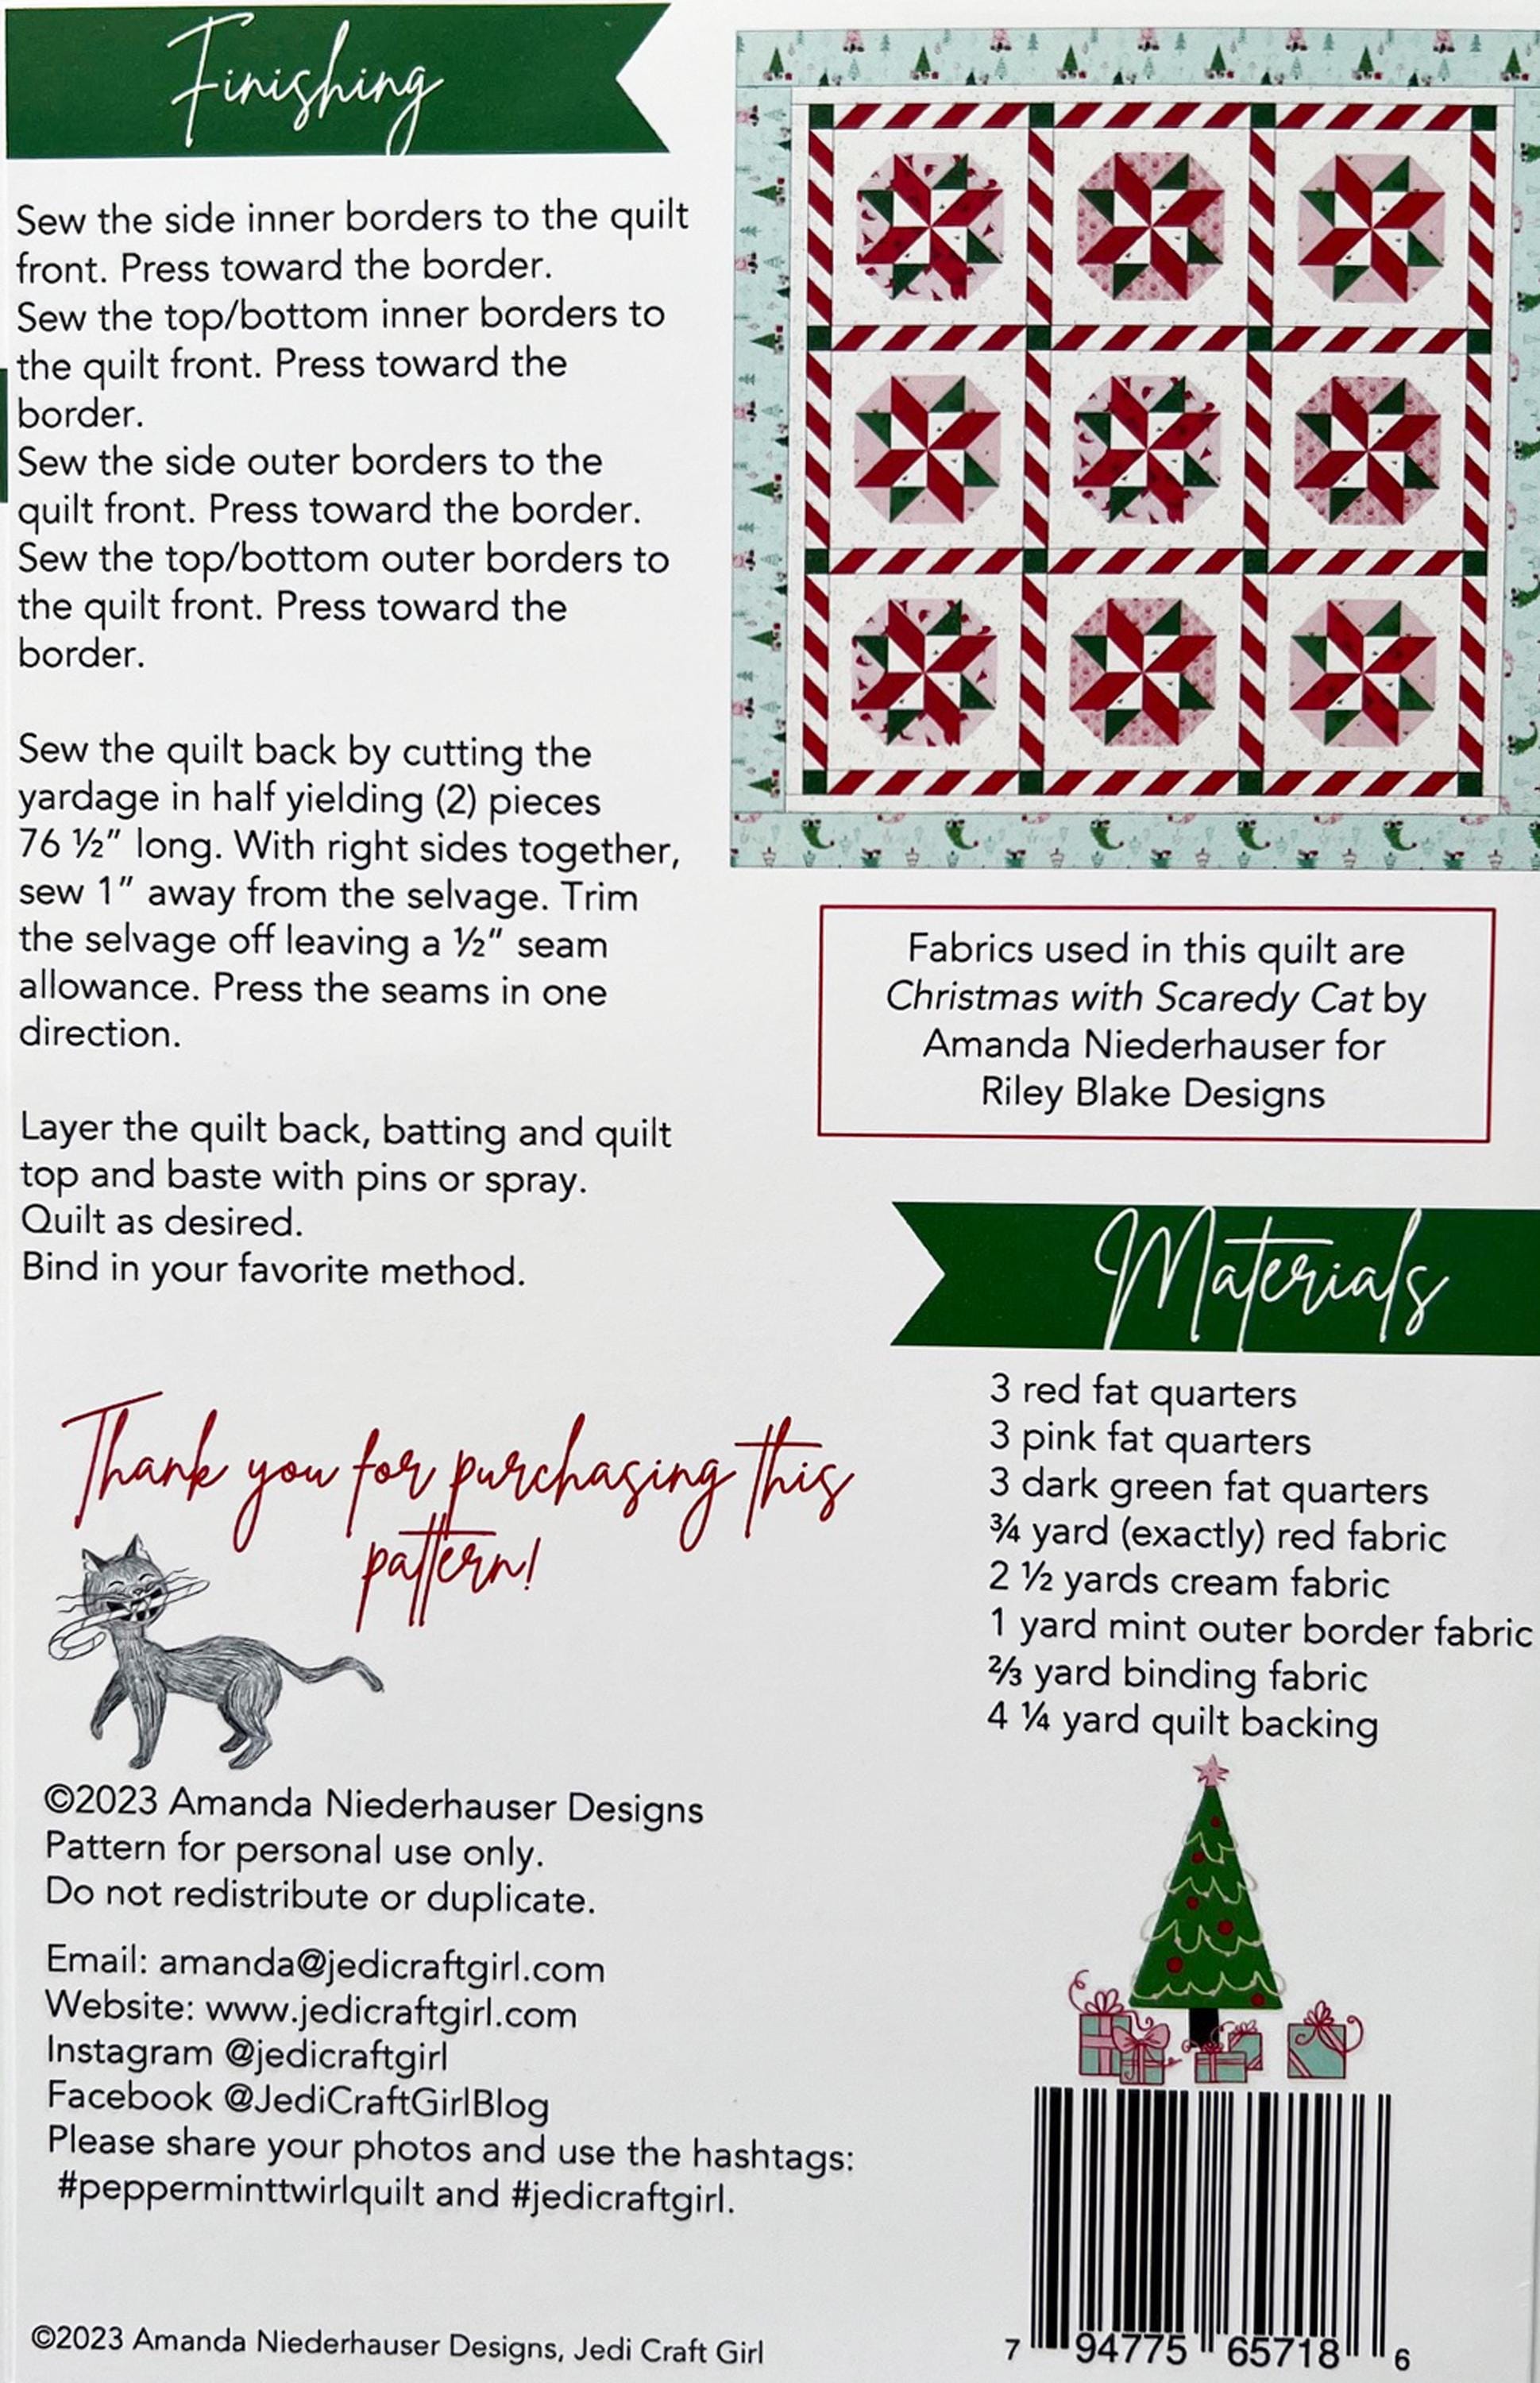 Finishing
Sew the side inner borders to the quilt
front. Press toward the border.
Sew the top/bottom inner borders to
the quilt front. Press toward the
border.
Sew the side outer borders to the
quilt front. Press toward the border.
Sew the top/bottom outer borders to
the quilt front. Press toward the
border.
Sew the quilt back by cutting the
yardage in half yielding (2) pieces
76 ½” long. With right sides together,
sew 1” away from the selvage. Trim
the selvage off leaving a ½” seam
allowance. Press the seams in one
direction.
Layer the quilt back, batting and quilt
top and baste with pins or spray.
Quilt as desired.
Bind in your favorite method.
Thank you for purchasing this
pattern!
©2023 Amanda Niederhauser Designs
Pattern for personal use only.
Do not redistribute or duplicate.
Email: amanda@jedicraftgirl.com
Website: www.jedicraftgirl.com
Instagram @jedicraftgirl
Facebook @JediCraftGirlBlog
Please share your photos and use the hashtags:
#pepperminttwirlquilt and #jedicraftgirl.
©2023 Amanda Niederhauser Designs, Jedi Craft Girl
Fabrics used in this quilt are
Christmas with Scaredy Cat by
Amanda Niederhauser for
Riley Blake Designs
Materials
3 red fat quarters
3 pink fat quarters
3 dark green fat quarters
¾ yard (exactly) red fabric
2 ½ yards cream fabric
1 yard mint outer border fabric
⅔ yard binding fabric
4 ¼ yard quilt backing
7 94775 65718 6